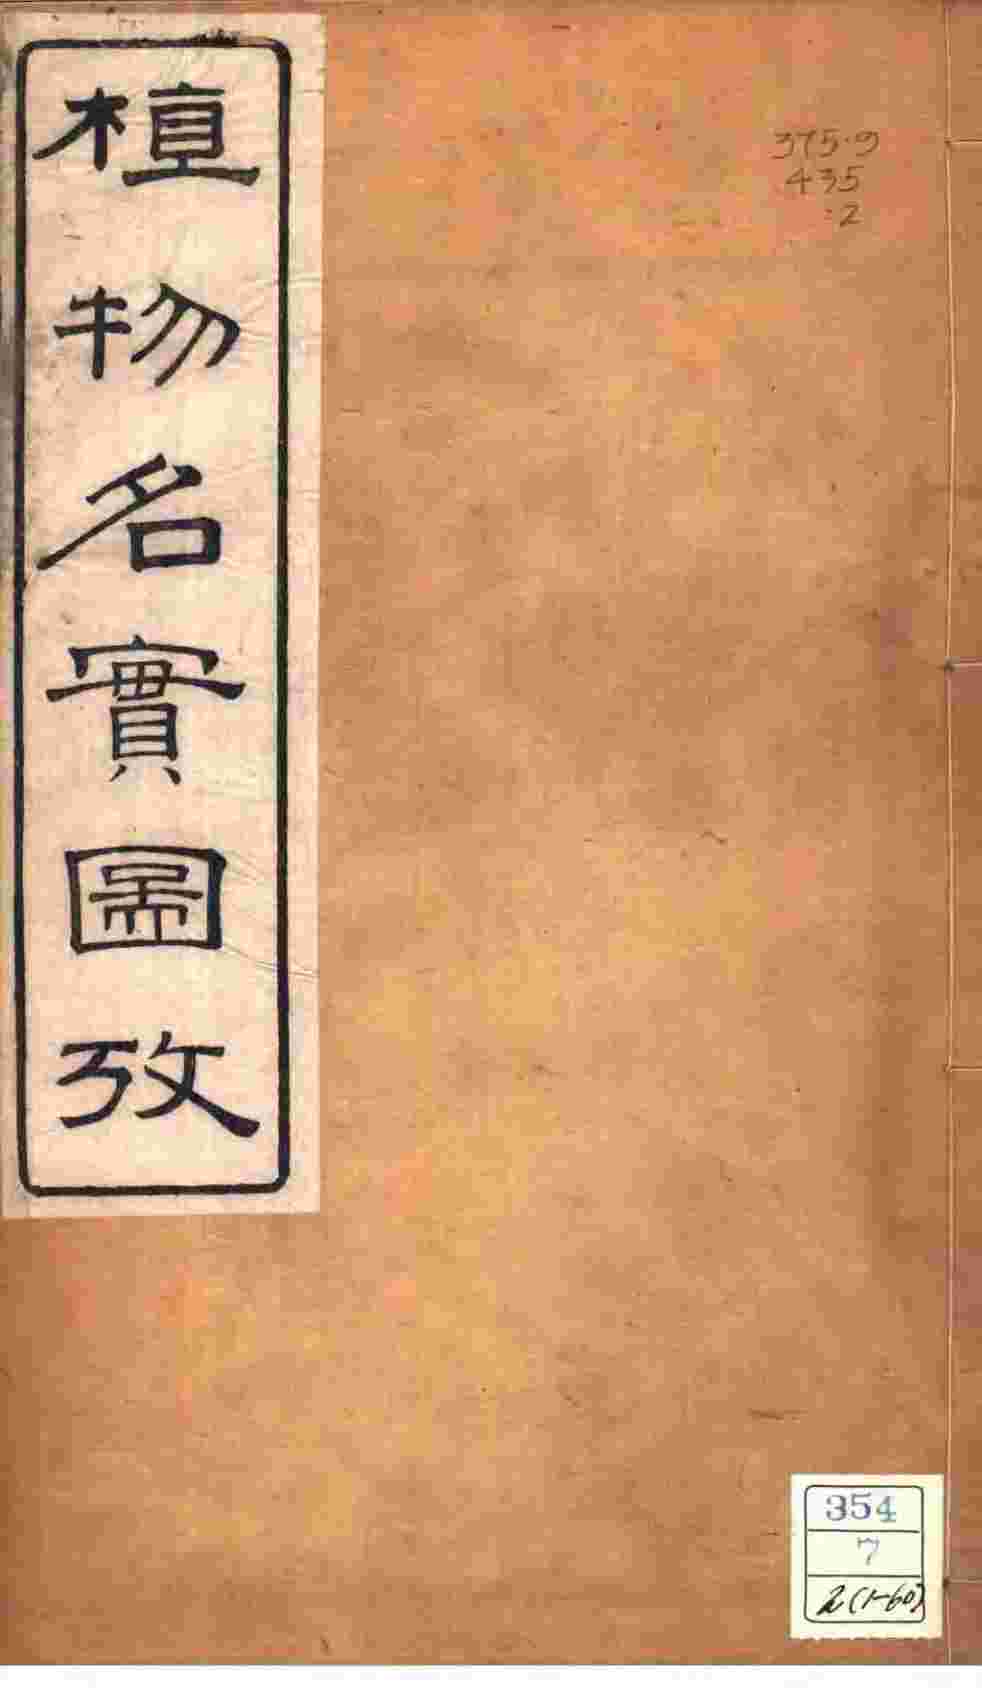 植物名實圖攷
375·9
435
:2
354
7
2(1-60)